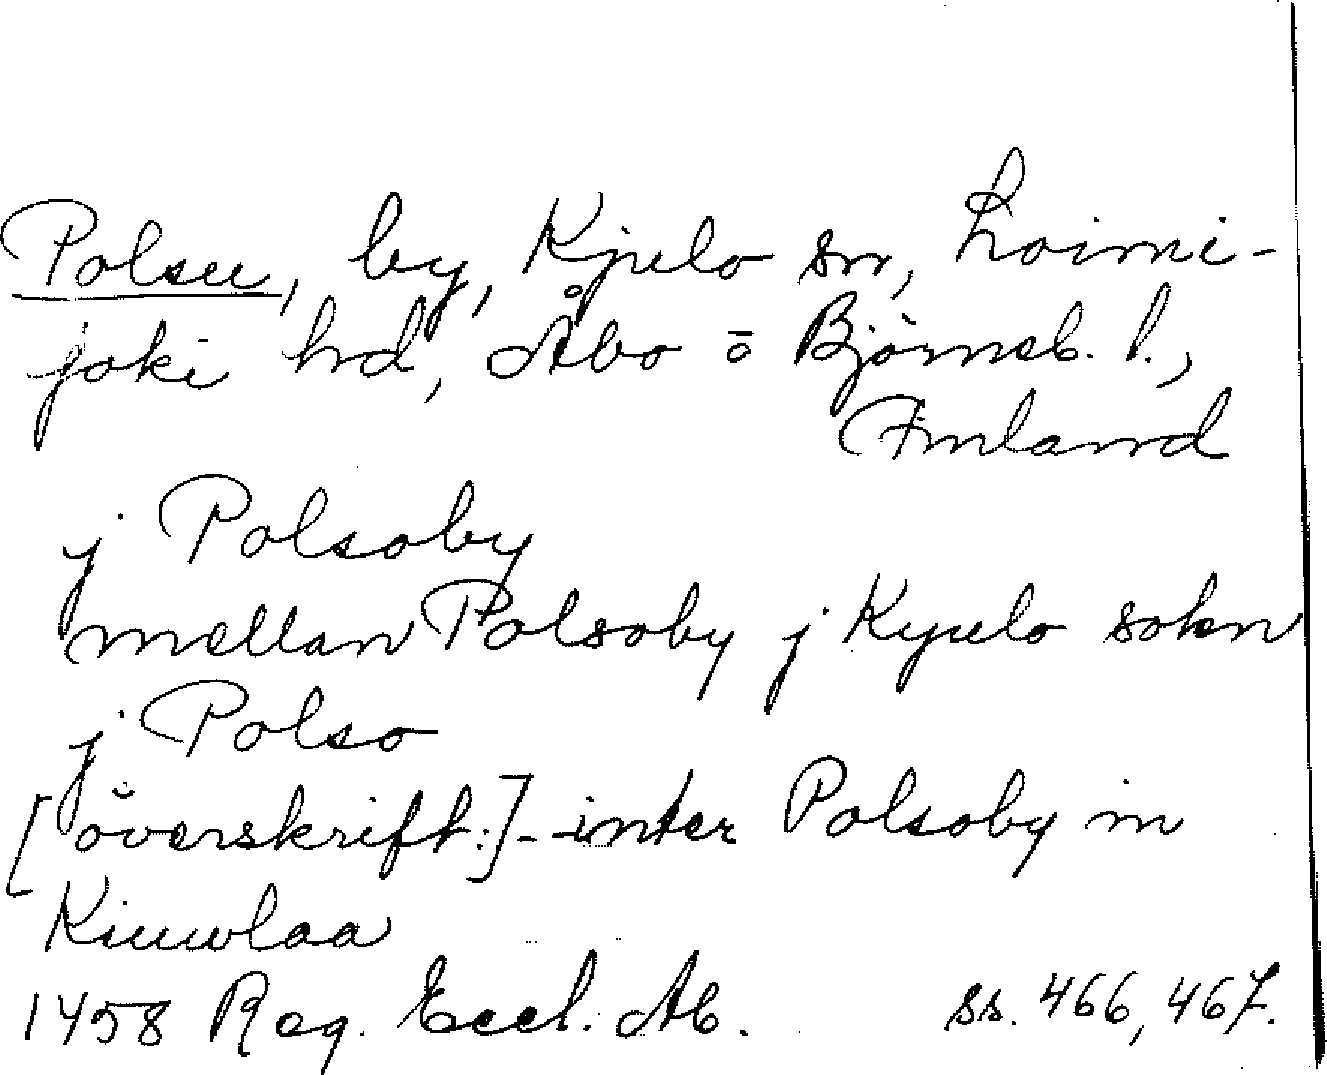 Polsu, by, Kjulo sn, Loimi-
joki hd, Åbo o Björneb. l.,
Finland
j Polsoby
mellan Polsoby j Kyulo sokn
j Polso
[överskrift:] - inter Polsoby in
Kiuwlaa
1458 Reg. Eccl. Ab. ss. 466, 467.